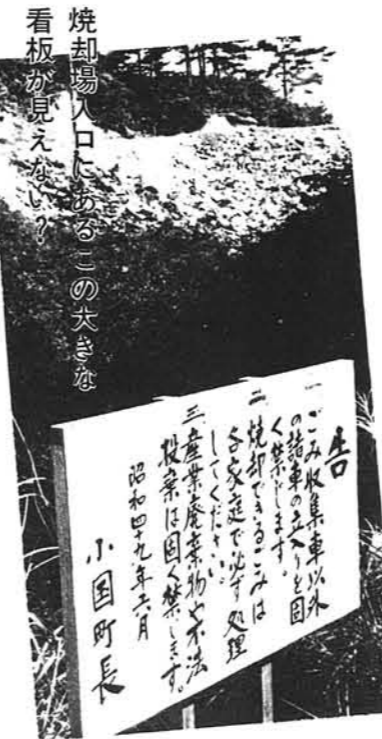 焼却場入口にあるこの大きな
看板が見えない?
告
一、ごみ収集車以外
の諸車の立入りを固
く禁じます。
二、焼却できるごみは
各家庭で必ず処理
してください。
三、産業廃棄物や不法
投棄は固く禁じます。
昭和四十九年六月
小国町長